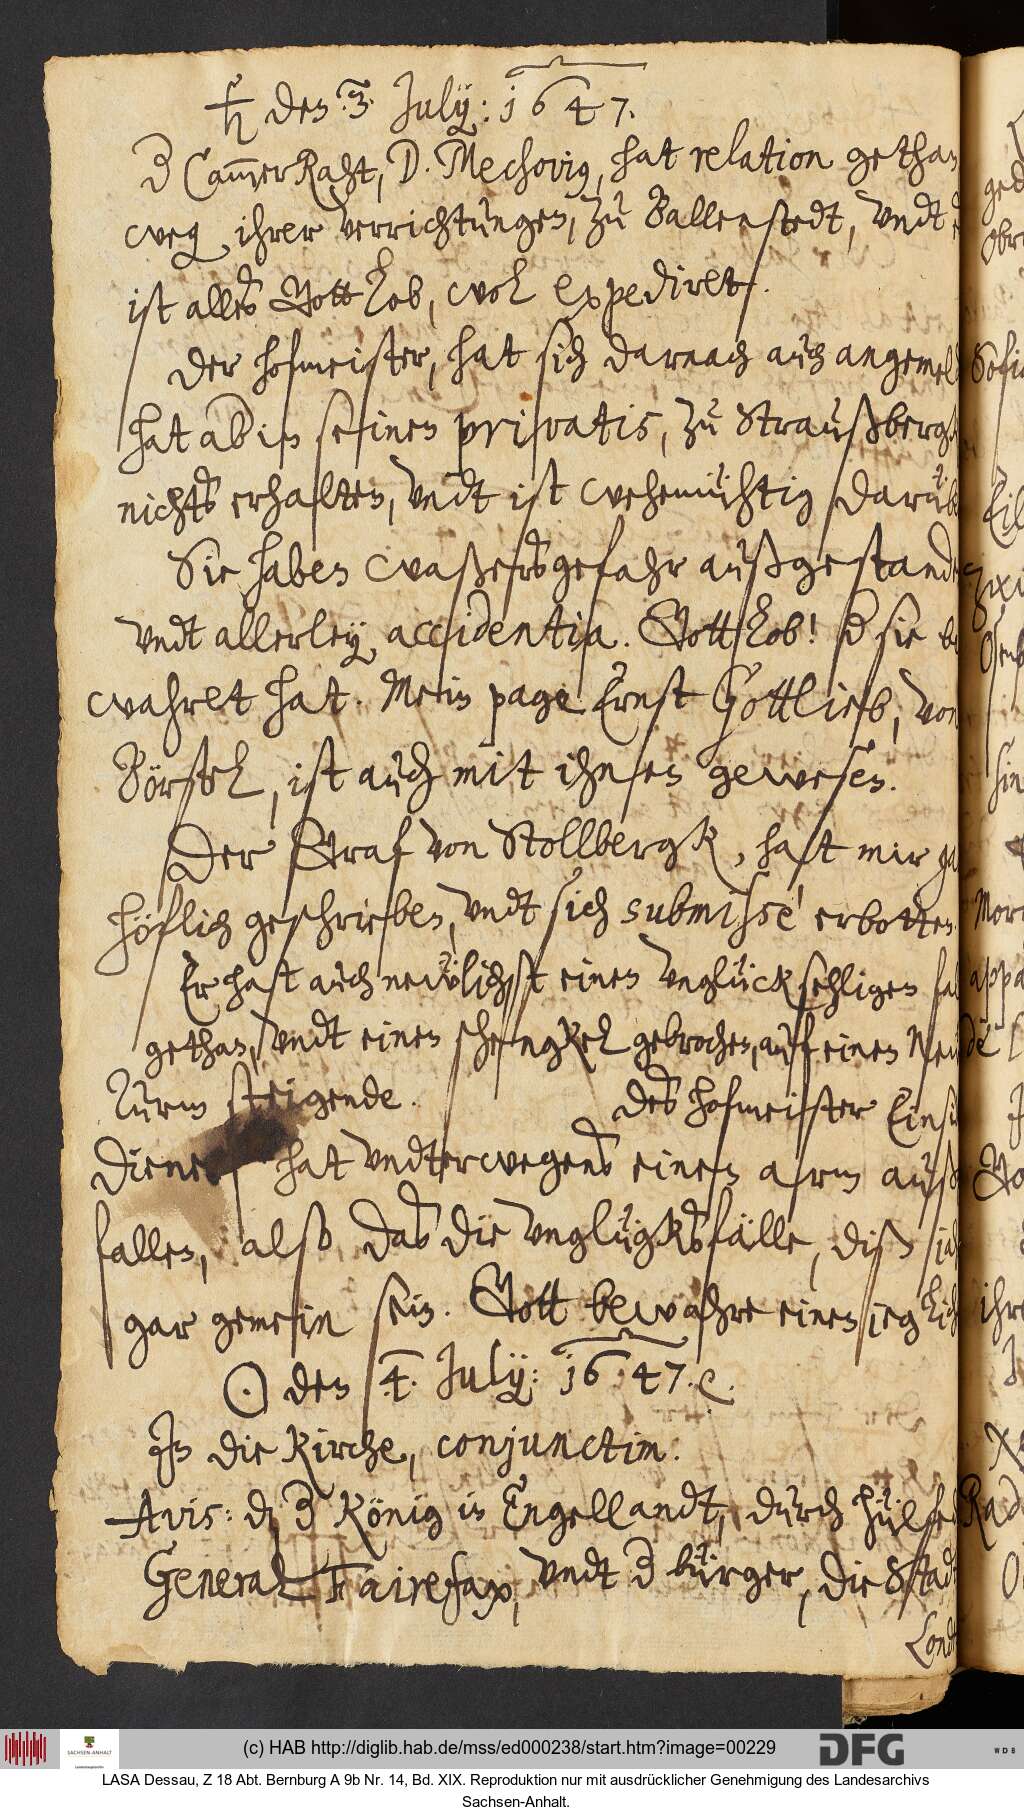 ♄ den .3. Julÿ: 1647.
CammerRaht, D. Mechovius, hat relation gethan
weg ihrer verrichtungen, zu Ballenstedt, vndt
ist alles Gott lob, wol expediret.
Der hofmeister, hat sich darnach auch angemeld
hat ab in seinen privatis, zu Straußbergk
nichts erhalten, vndt ist wehemühtig darüb
Sie haben waßersgefahr außgestande
vndt allerley accidentia. Gott lob! sie be
wahret hat. Mein page Ernst Gottlieb, von
Börstel, ist auch mit ihnen gewesen.
Der Graf von Stollbergk, hatt mir ga
höflich geschrieben, vndt sich submisse erbotten.
Er hatt auch neẅlichst einen vnglückseligen fal
gethan, vndt einen schengkel gebrochen, auf einen Neẅ
Turm steigende. Des hofmeister Einsi
Diener hat vndterwegens einen arm auß
fallen, also das die vnglügksfälle, diß jah
gar gemein sein. Gott bewahre einen jeglich
☉ den 4. Julÿ: 1647.
In die Kirche, conjunctim.
Avis: König in Engellandt, durch hülfe
General Fairefax, vndt bürger, die Stadt
Londe
(c) HAB http://diglib.hab.de/mss/ed000238/start.htm?image=00229
DFG
WDB
SACHSEN-ANHALT
LASA Dessau, Z 18 Abt. Bernburg A 9b Nr. 14, Bd. XIX. Reproduktion nur mit ausdrücklicher Genehmigung des Landesarchivs
Sachsen-Anhalt.